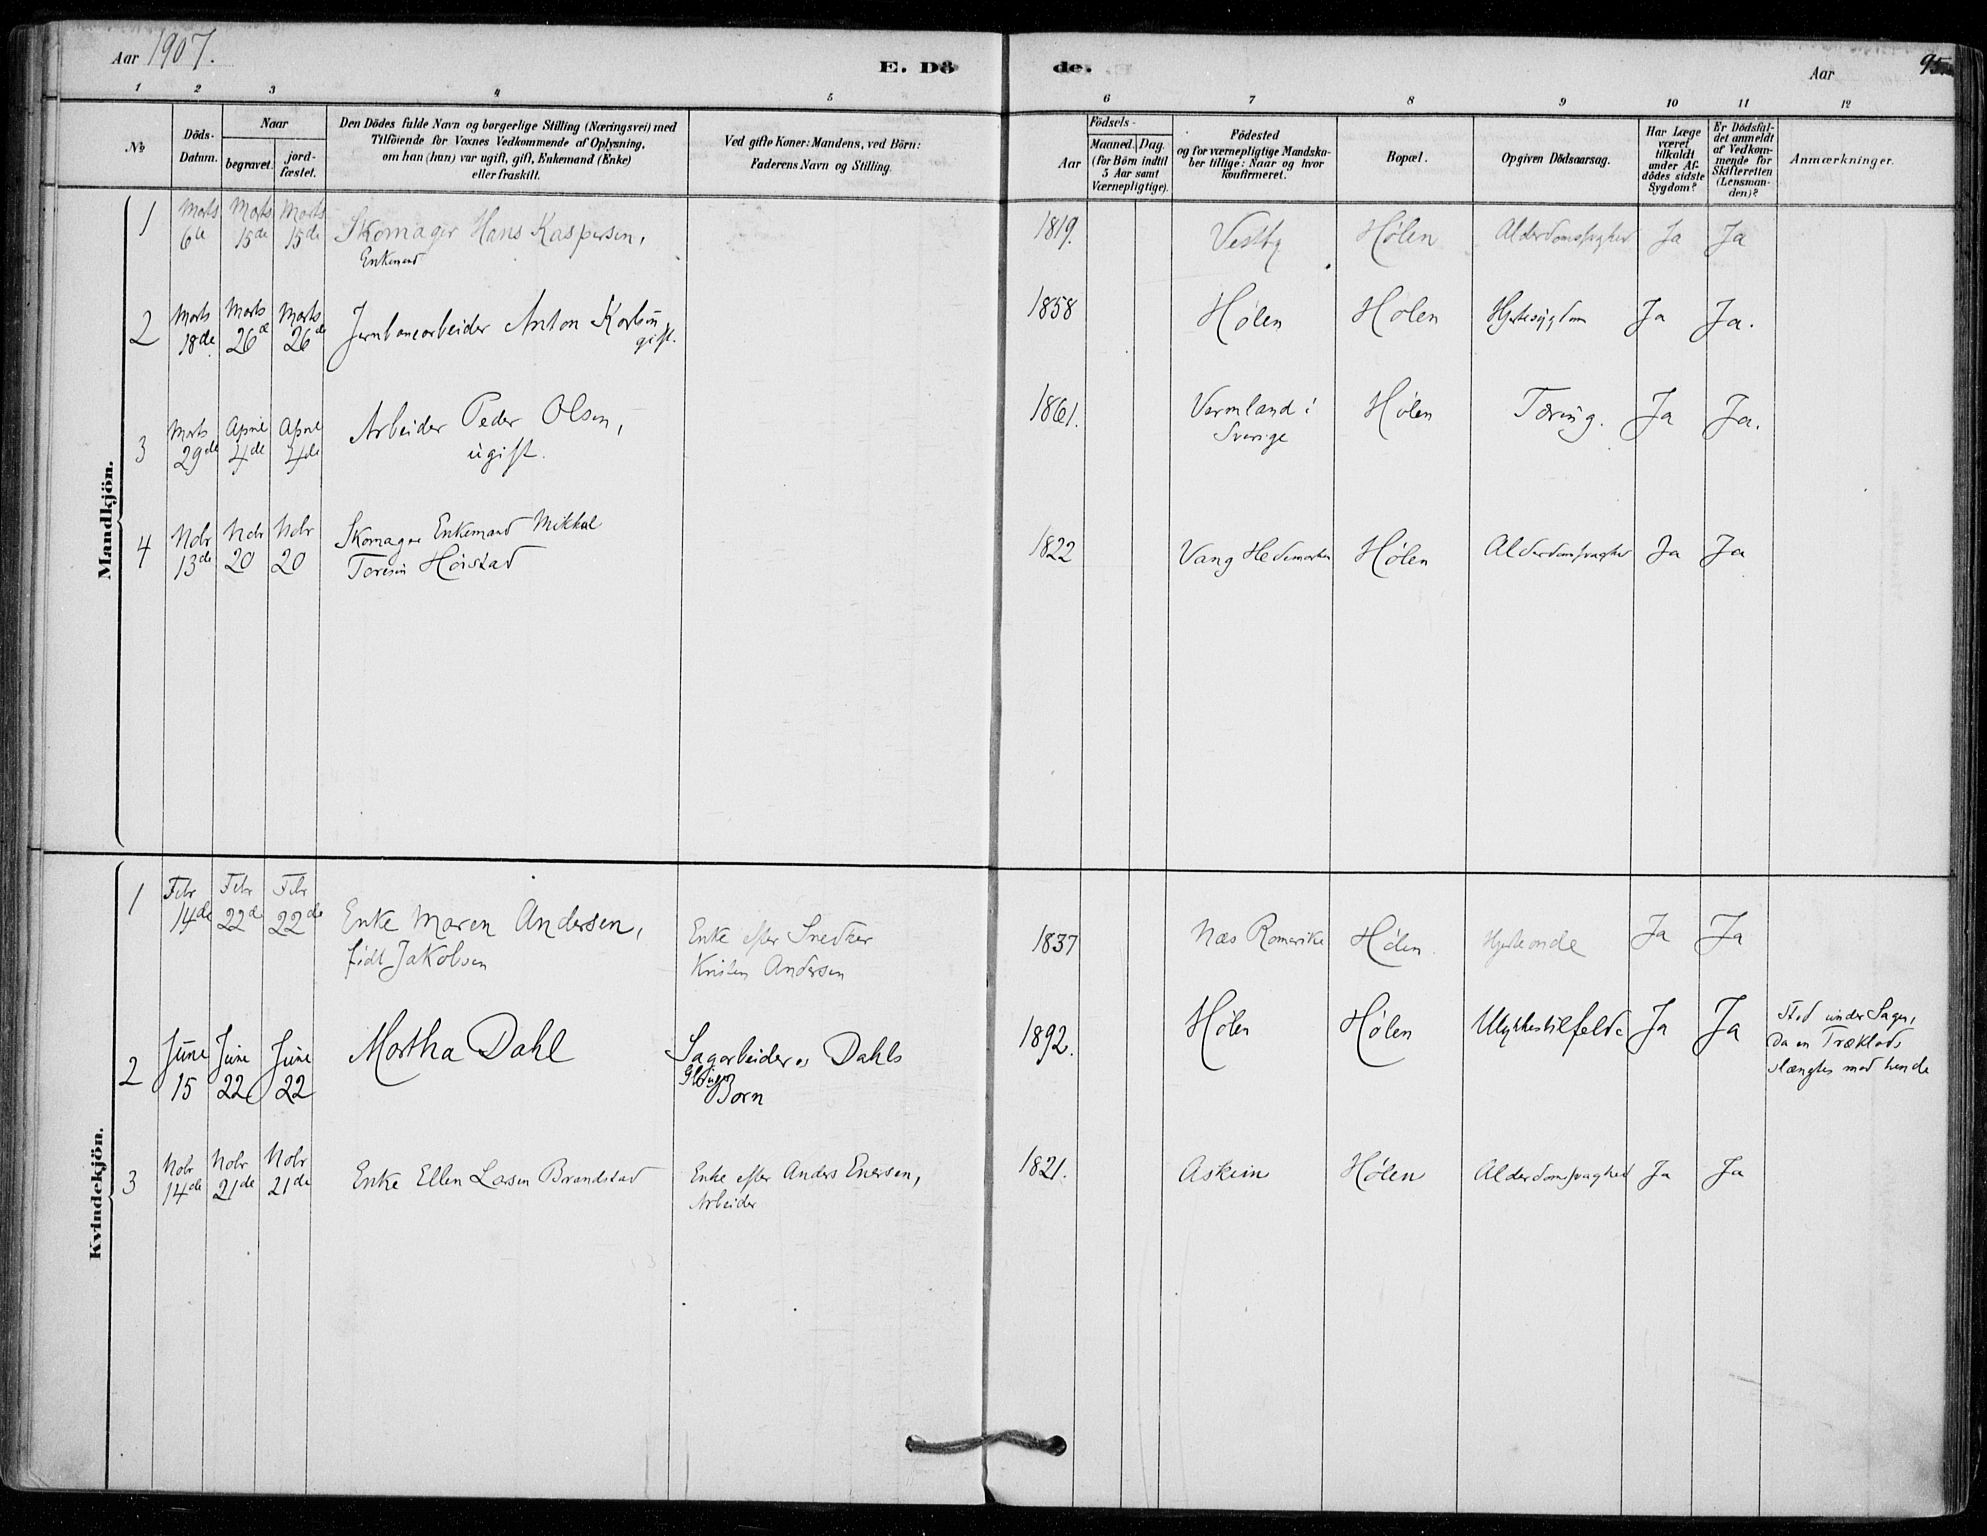 Aar 1907.
E. Dö de.
Aar 95
1 2 3 4 5 6 7 8 9 10 11 12
№
Döds-
Datum.
Naar
begravet.
jord-
fæstet.
Den Dödes fulde Navn og borgerlige Stilling (Næringsvei) med
Tilföiende for Voxnes Vedkommende af Oplysning,
om han (hun) var ugift, gift, Enkemand (Enke)
eller fraskilt.
Ved gifte Koner: Mandens, ved Börn:
Faderens Navn og Stilling.
Födsels-
Aar
Maaned. Dag.
(for Börn indtil
5 Aar samt
Værnepligtige).
Födested
og for værnepligtige Mandska-
ber tillige: Naar og hvor
konfirmeret.
Bopæl.
Opgiven Dödsaarsag.
Har Læge
været
tilkaldt
under Af-
dödes sidste
Sygdom?
Er Dödsfal-
det anmeldt
af Vedkom-
mende for
Skifteretten
(Lensman-
den)?
Anmærkninger.
Mandkjön.
1 Marts 6te Marts 15de Marts 15de Skomager Hans Kaspersen, 1819. Vestby Hølen Alderdomssvaghed Ja Ja
Enkemand
2 Marts 18de Marts 26de Marts 26de Jernbanearbeider Anton Karlsen 1858 Hølen Hølen Hjertesygdom Ja Ja.
gift.
3 Marts 29de April 4de April 4de Arbeider Peder Olsen, 1861. Vermland i Hølen Tæring. Ja Ja.
ugift. Sverige
4 Nobr 13de Nobr 20 Nobr 20 Skomager Enkemand Mikkal 1822 Vang Hedemarken Hølen Alderdomssvaghed Ja Ja
Toresen Hoistad
Kvindekjön.
1 Febr 14de Febr 22de Febr 22de Enke Maren Andersen, Enke efter Snedker 1837 Næs Romerike Hølen Hjerteonde Ja Ja
født Jakobsen Kristen Andersen
2 June 15 June 22 June 22 Martha Dahl Sagarbeider Dahls 1892. Hølen Hølen Ulykkestilfelde Ja Ja Stod under Sagen,
Barn da en Træklods
slængtes mod hende
3 Nobr 14de Nobr 21de Nobr 21de Enke Ellen Larsen Brandstad Enke efter Anders Enersen, 1821. Askim Hølen Alderdomssvaghed Ja Ja
Arbeider